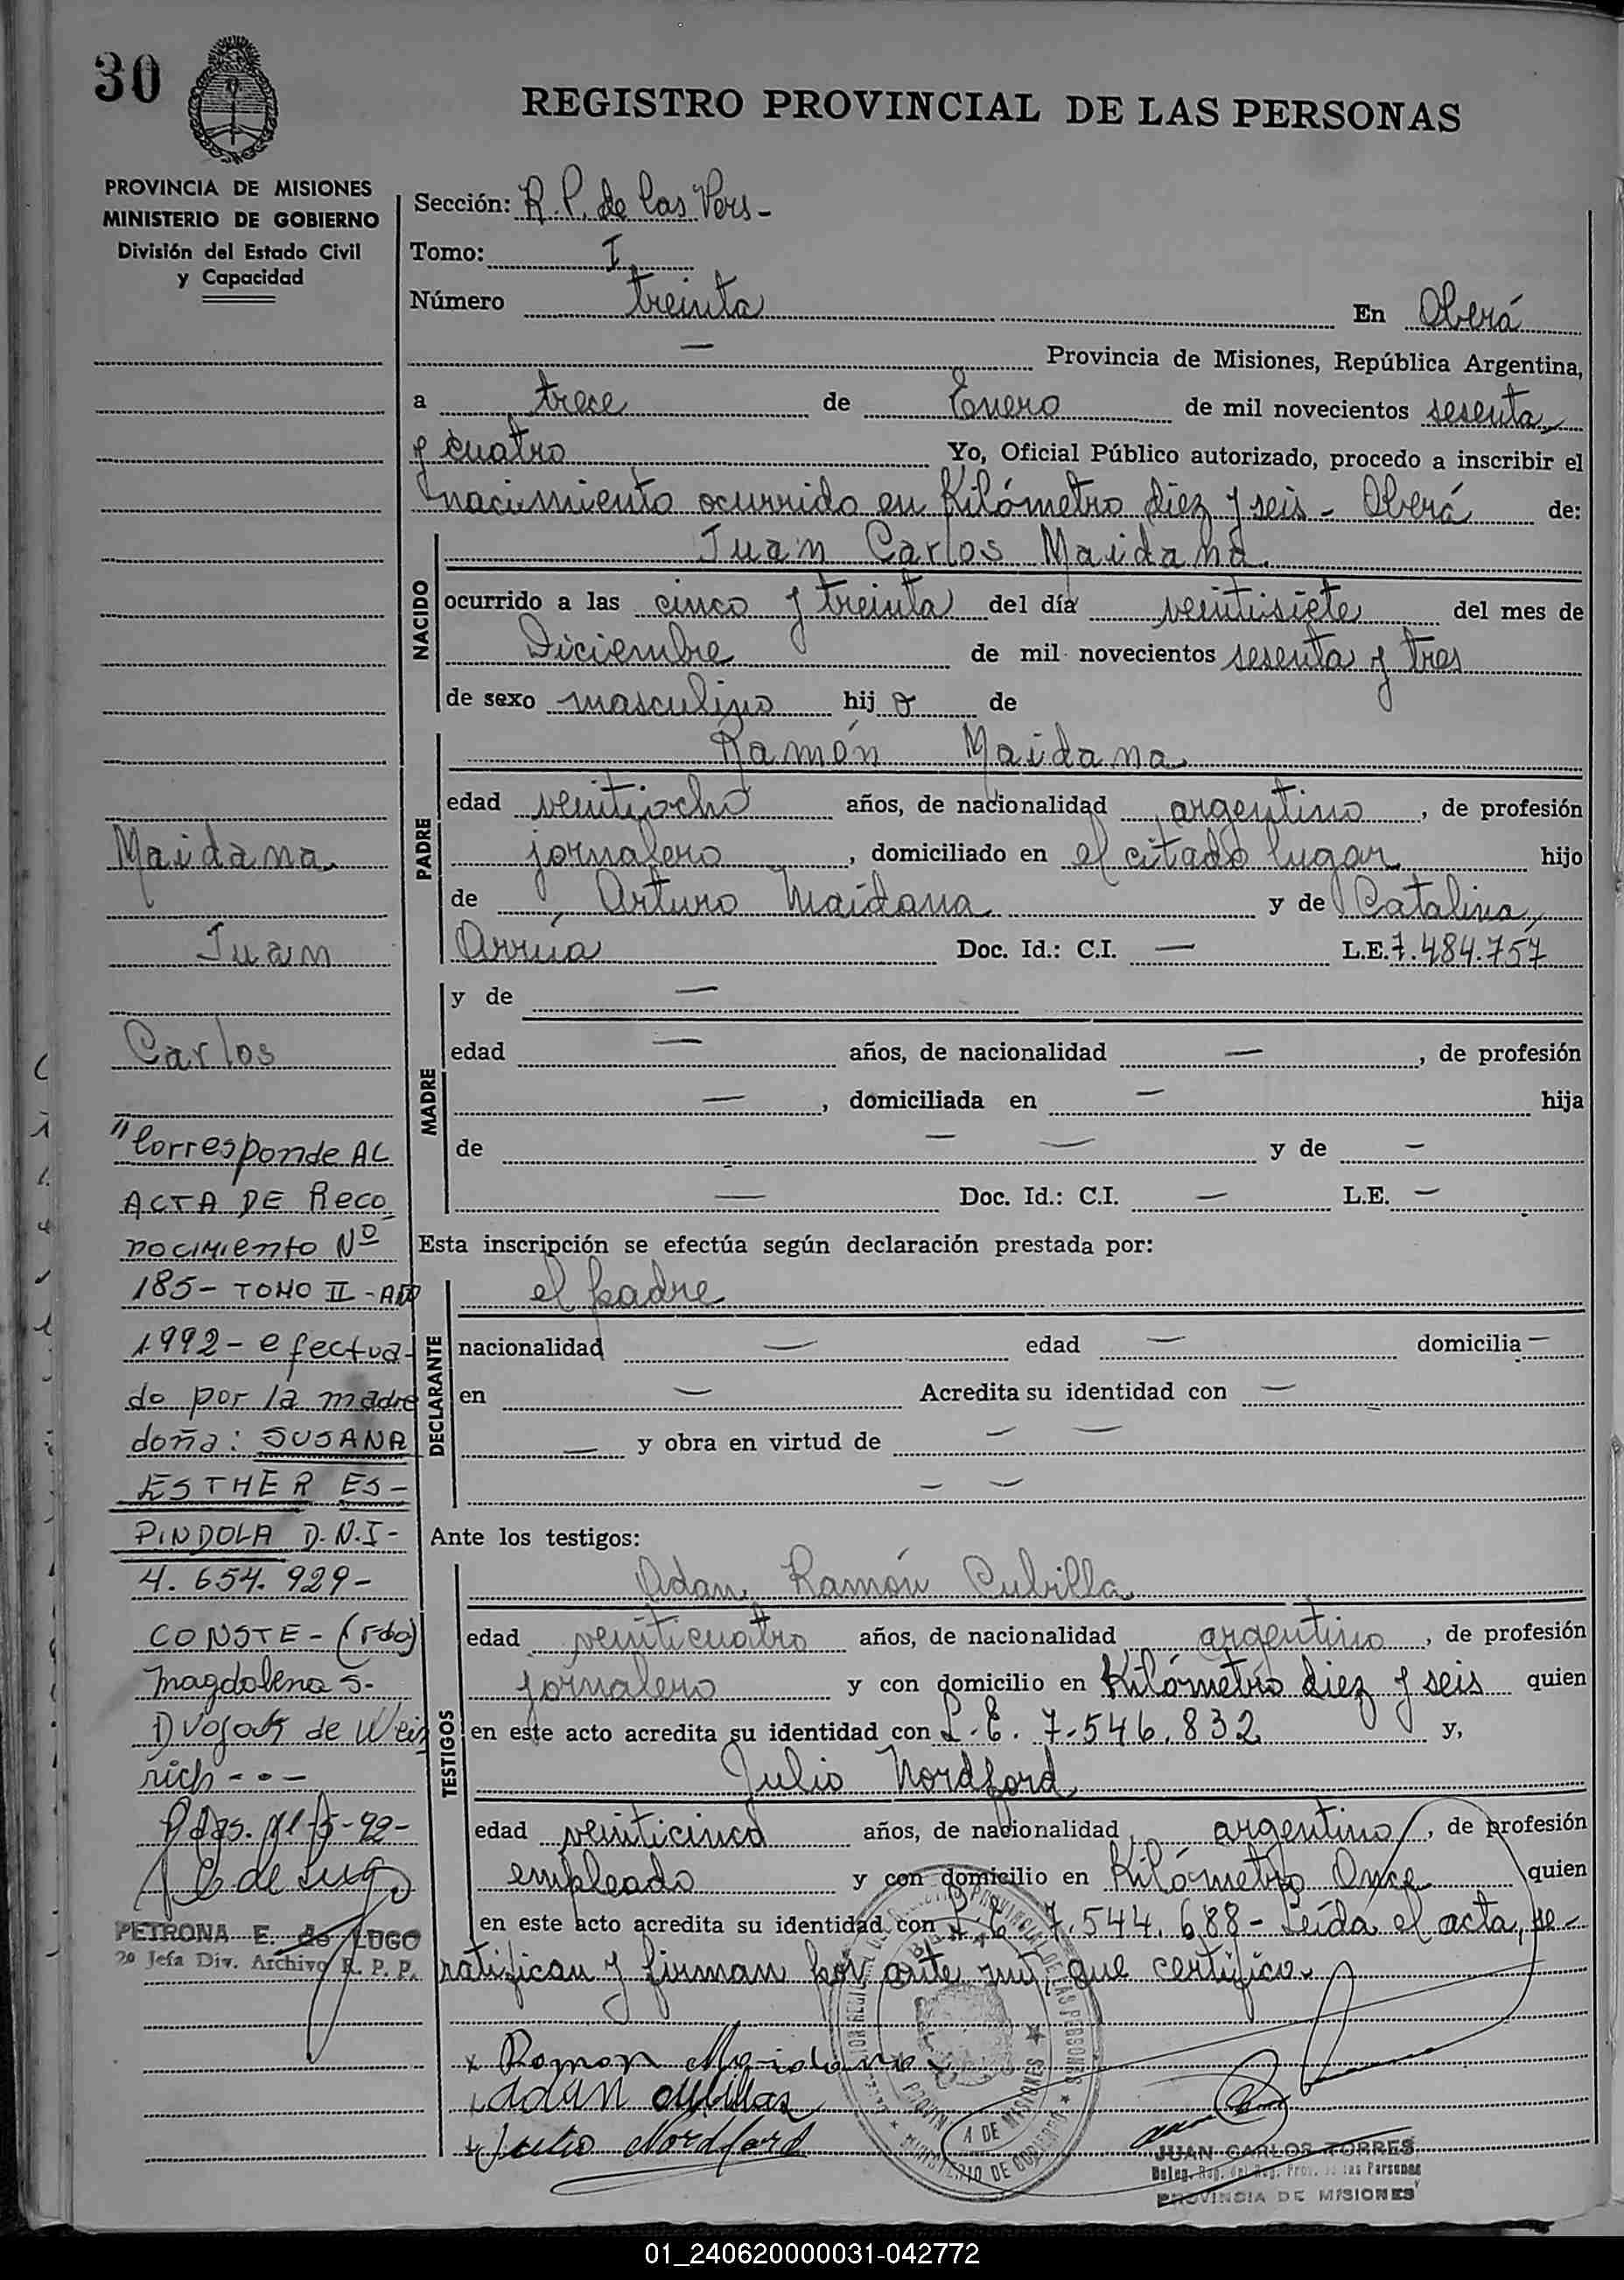 30
REGISTRO PROVINCIAL DE LAS PERSONAS
PROVINCIA DE MISIONES
MINISTERIO DE GOBIERNO
División del Estado Civil
y Capacidad
Sección: R.P. de las Pers-
Tomo: I
Número treinta En Oberá
— Provincia de Misiones, República Argentina,
a trece de Enero de mil novecientos sesenta
y cuatro Yo, Oficial Público autorizado, procedo a inscribir el
nacimiento ocurrido en Kilómetro diez y seis - Oberá de:
NACIDO
Juan Carlos Maidana
ocurrido a las cinco y treinta del día veintisiete del mes de
Diciembre de mil novecientos sesenta y tres
de sexo masculino hijo de
PADRE
Ramón Maidana
edad veintiocho años, de nacionalidad argentino, de profesión
jornalero, domiciliado en el citado lugar hijo
de Arturo Maidana y de Catalina
Arrúa Doc. Id.: C.I. — L.E. 7.484.757
MADRE
y de —
edad — años, de nacionalidad —, de profesión
—, domiciliada en — hija
de — — y de —
— Doc. Id.: C.I. — L.E. —
Esta inscripción se efectúa según declaración prestada por:
DECLARANTE
el padre
nacionalidad — edad — domicilia —
en — Acredita su identidad con —
— y obra en virtud de — —
— —
Ante los testigos:
TESTIGOS
Adan Ramón Cubilla
edad veinticuatro años, de nacionalidad argentino, de profesión
jornalero y con domicilio en Kilómetro diez y seis quien
en este acto acredita su identidad con L.E. 7.546.832 y,
Julio Nordford
edad veinticinco años, de nacionalidad argentino, de profesión
empleado y con domicilio en Kilómetro Once quien
en este acto acredita su identidad con L.E. 7.544.688- Leída el acta, se
ratifican y firman por ante mí, que certifico.
x Ramon Maidana
x Adan Cubillas
x Julio Nordford
JUAN CARLOS TORRES
Deleg. Reg. del Reg. Prov. de las Personas
PROVINCIA DE MISIONES
MINISTERIO DE GOBIERNO
Maidana
Juan
Carlos
"Corresponde AL
ACTA DE Reco
nocimiento Nº
185- TOMO II - AÑO
1992- efectua-
do por la madre
doña: SUSANA
ESTHER ES-
PINDOLA D.N.I-
4.654.929-
CONSTE- (Fdo)
Magdalena S.
de Wein
rich - . -
Pdas. -5-92-
E de Lugo
PETRONA E. de LUGO
2º Jefa Div. Archivo R. P. P.
01_240620000031-042772